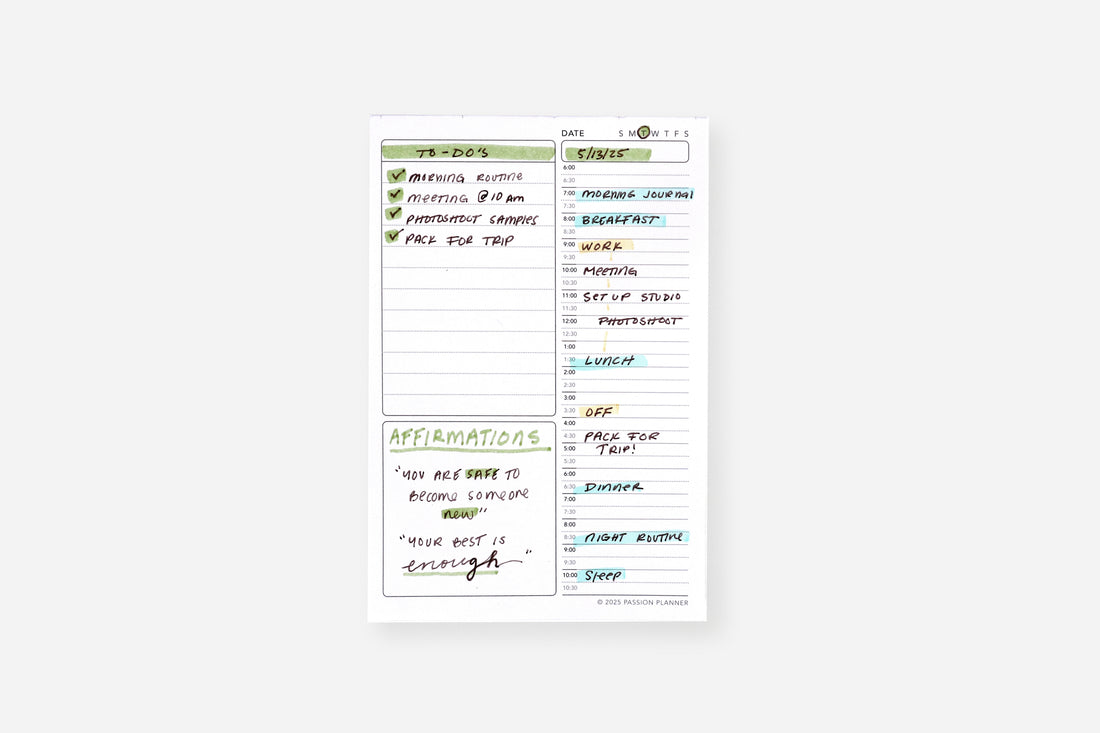 DATE S M T W T F S
TO-DO'S
MORNING ROUTINE
MEETING @ 10 AM
PHOTOSHOOT SAMPLES
PACK FOR TRIP
AFFIRMATIONS
"YOU ARE SAFE TO
BECOME SOMEONE
NEW"
"YOUR BEST IS
enough"
5/13/25
6:00
6:30
7:00 MORNING JOURNAL
7:30
8:00 BREAKFAST
8:30
9:00 WORK
9:30
10:00 MEETING
10:30
11:00 SET UP STUDIO
11:30
12:00 PHOTOSHOOT
12:30
1:00
1:30 LUNCH
2:00
2:30
3:00
3:30 OFF
4:00
4:30 PACK FOR
5:00 TRIP!
5:30
6:00
6:30 DINNER
7:00
7:30
8:00
8:30 NIGHT ROUTINE
9:00
9:30
10:00 SLEEP
10:30
© 2025 PASSION PLANNER